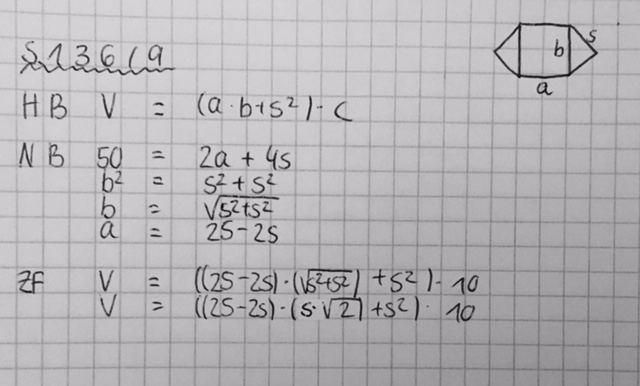 S. 136/9
s
b
a
HB V = (a·b+s²)·c
NB 50 = 2a + 4s
b² = s² + s²
b = √s²+s²
a = 25-2s
ZF V = ((25-2s)·(√s²+s²) +s²)·10
V = ((25-2s)·(s·√2) +s²)·10